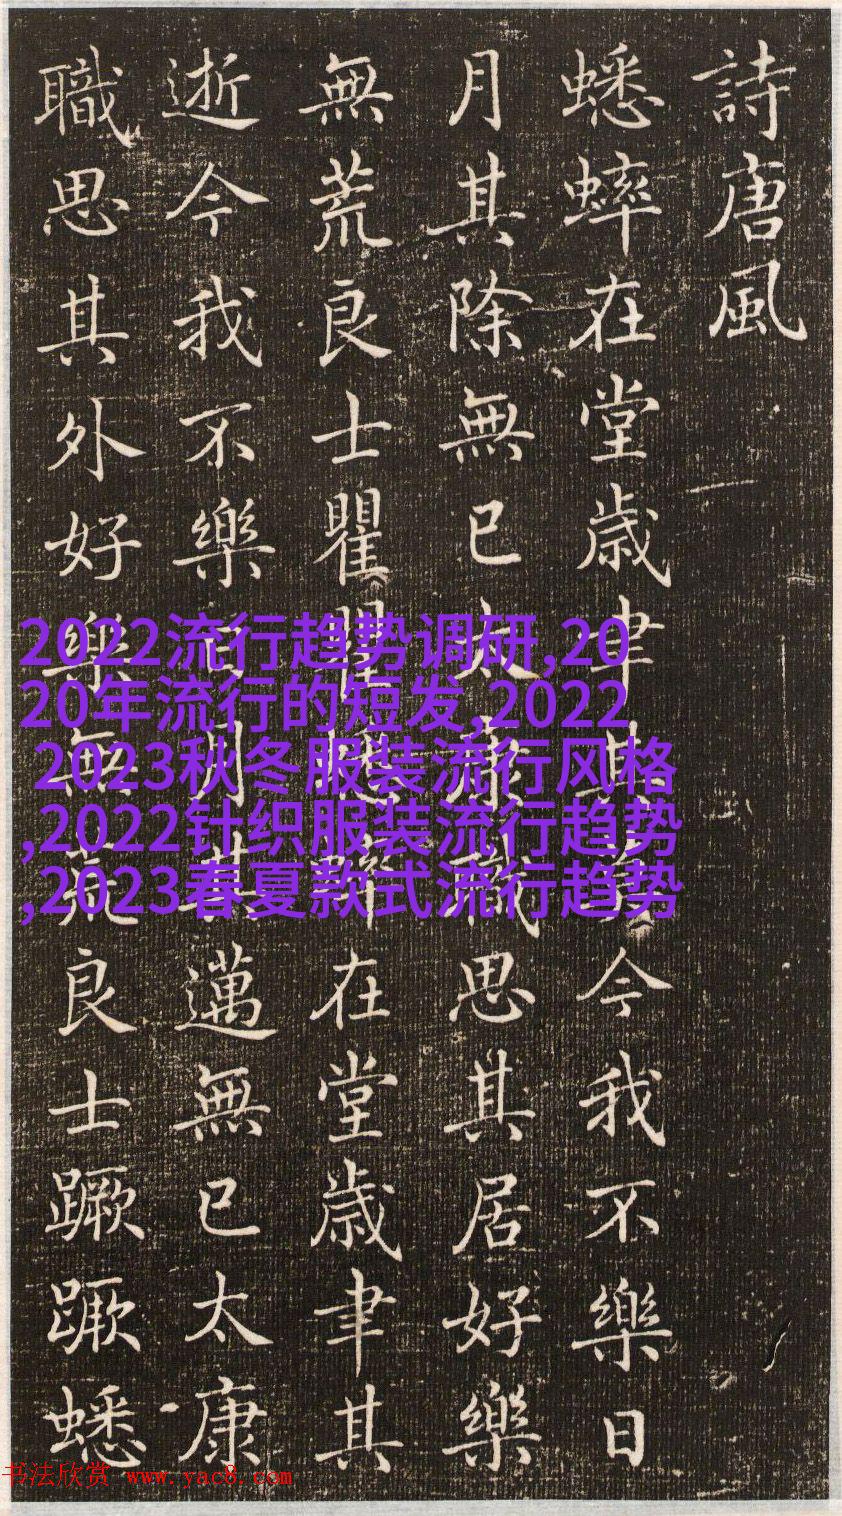 詩唐風
蟋蟀在堂歳聿其莫今我不樂日
月其除無已太康職思其居好樂
無荒良士瞿瞿蟋蟀在堂歳聿其
逝今我不樂日月其邁無已太康
職思其外好樂無荒良士蹶蹶蟋
2022流行趋势调研,20
20年流行的短发,2022
2023秋冬服装流行风格
,2022针织服装流行趋势
,2023春夏款式流行趋势
书法欣赏 www.yac8.com